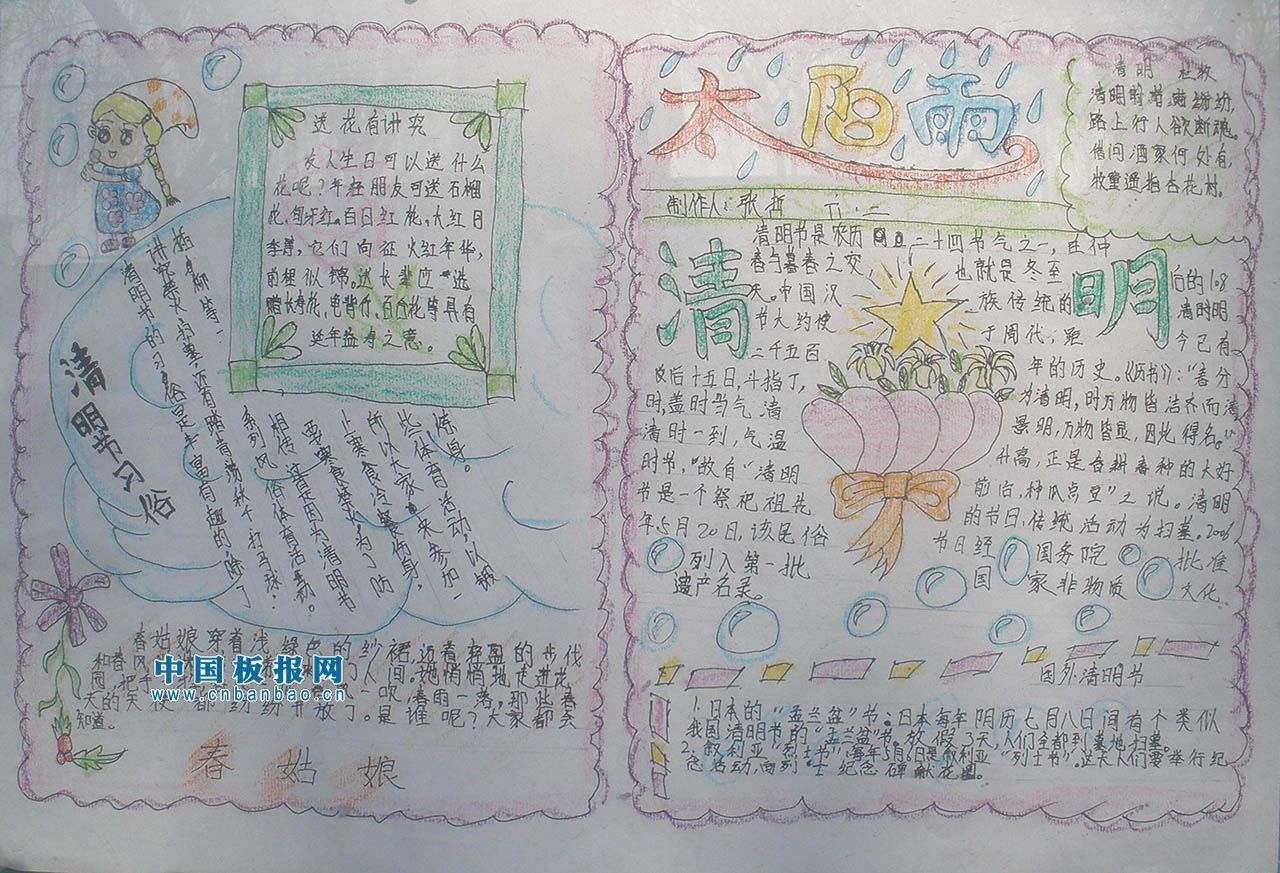 送花有讲究
友人生日可以送什么
花呢？年轻朋友可送石榴
花，句牙红。百日红花。大红月
季等，它们向征火红年华，
前程似锦。送长辈应选
赠长寿花，龟背竹、百合花等具有
延年益寿之意。
清明节习俗
清明节的习俗是丰富有趣的，除了
讲究禁火扫墓，还有踏青荡秋千、打马球、
插柳等一
系列风俗体育活动。
相传这是因为清明节
要寒食禁火，为了防
止寒食冷餐伤身，
所以大家来参加一
些体育活动，以锻
炼身。
春姑娘穿着浅绿色的纱裙，迈着轻盈的步伐
和春风
人间。她悄悄地走进花
一吹，春雨一落，那些春
天的天使 都纷纷开放了。是谁呢？大家都会
知道。
春姑娘
中国板报网
www.cnbanbao.cn
太阳雨
制作人：张哲 六.二
清明 杜牧
清明时节雨纷纷，
路上行人欲断魂。
借问酒家何处有，
牧童遥指杏花村。
清明
清明节是农历二十四节气之一，在仲
春与暮春之交，也就是冬至后的108
天。中国汉族传统的清明
节大约使于周代，距今已有
二千五百年的历史。《历书》：“春分
后十五日，斗指丁，为清明，时万物皆洁齐而清
明，盖时当气清景明，万物皆显，因此得名。”
清时一到，气温升高，正是春耕春种的大好
时节，“故有”清明前后，种瓜点豆”之说。清明
节是一个祭祀祖先的节日，传统活动为扫墓。2006
年5月20日，该民俗节日经国务院批准
列入第一批国家非物质文化
遗产名录。
国外清明节
1.日本的“孟兰盆”节：日本每年阴历七月八日间有个类似
我国清明节的“孟兰盆”节。放假3天，人们全都到墓地扫墓。
2.叙利亚“烈士节”，每年5月6日是叙利亚“列士节”。这天人们要举行纪
念活动，向列士纪念碑献花圈。